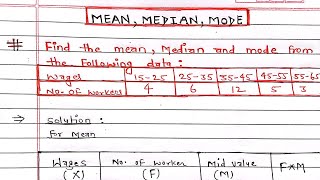 MEAN, MEDIAN, MODE
# Find the mean, Median and mode from
the following data:
Wages 15-25 25-35 35-45 45-55 55-65
No. of workers 4 6 12 5 3
⇒ Solution:
For Mean
Wages (X) No. of worker (F) Mid value (M) F*M